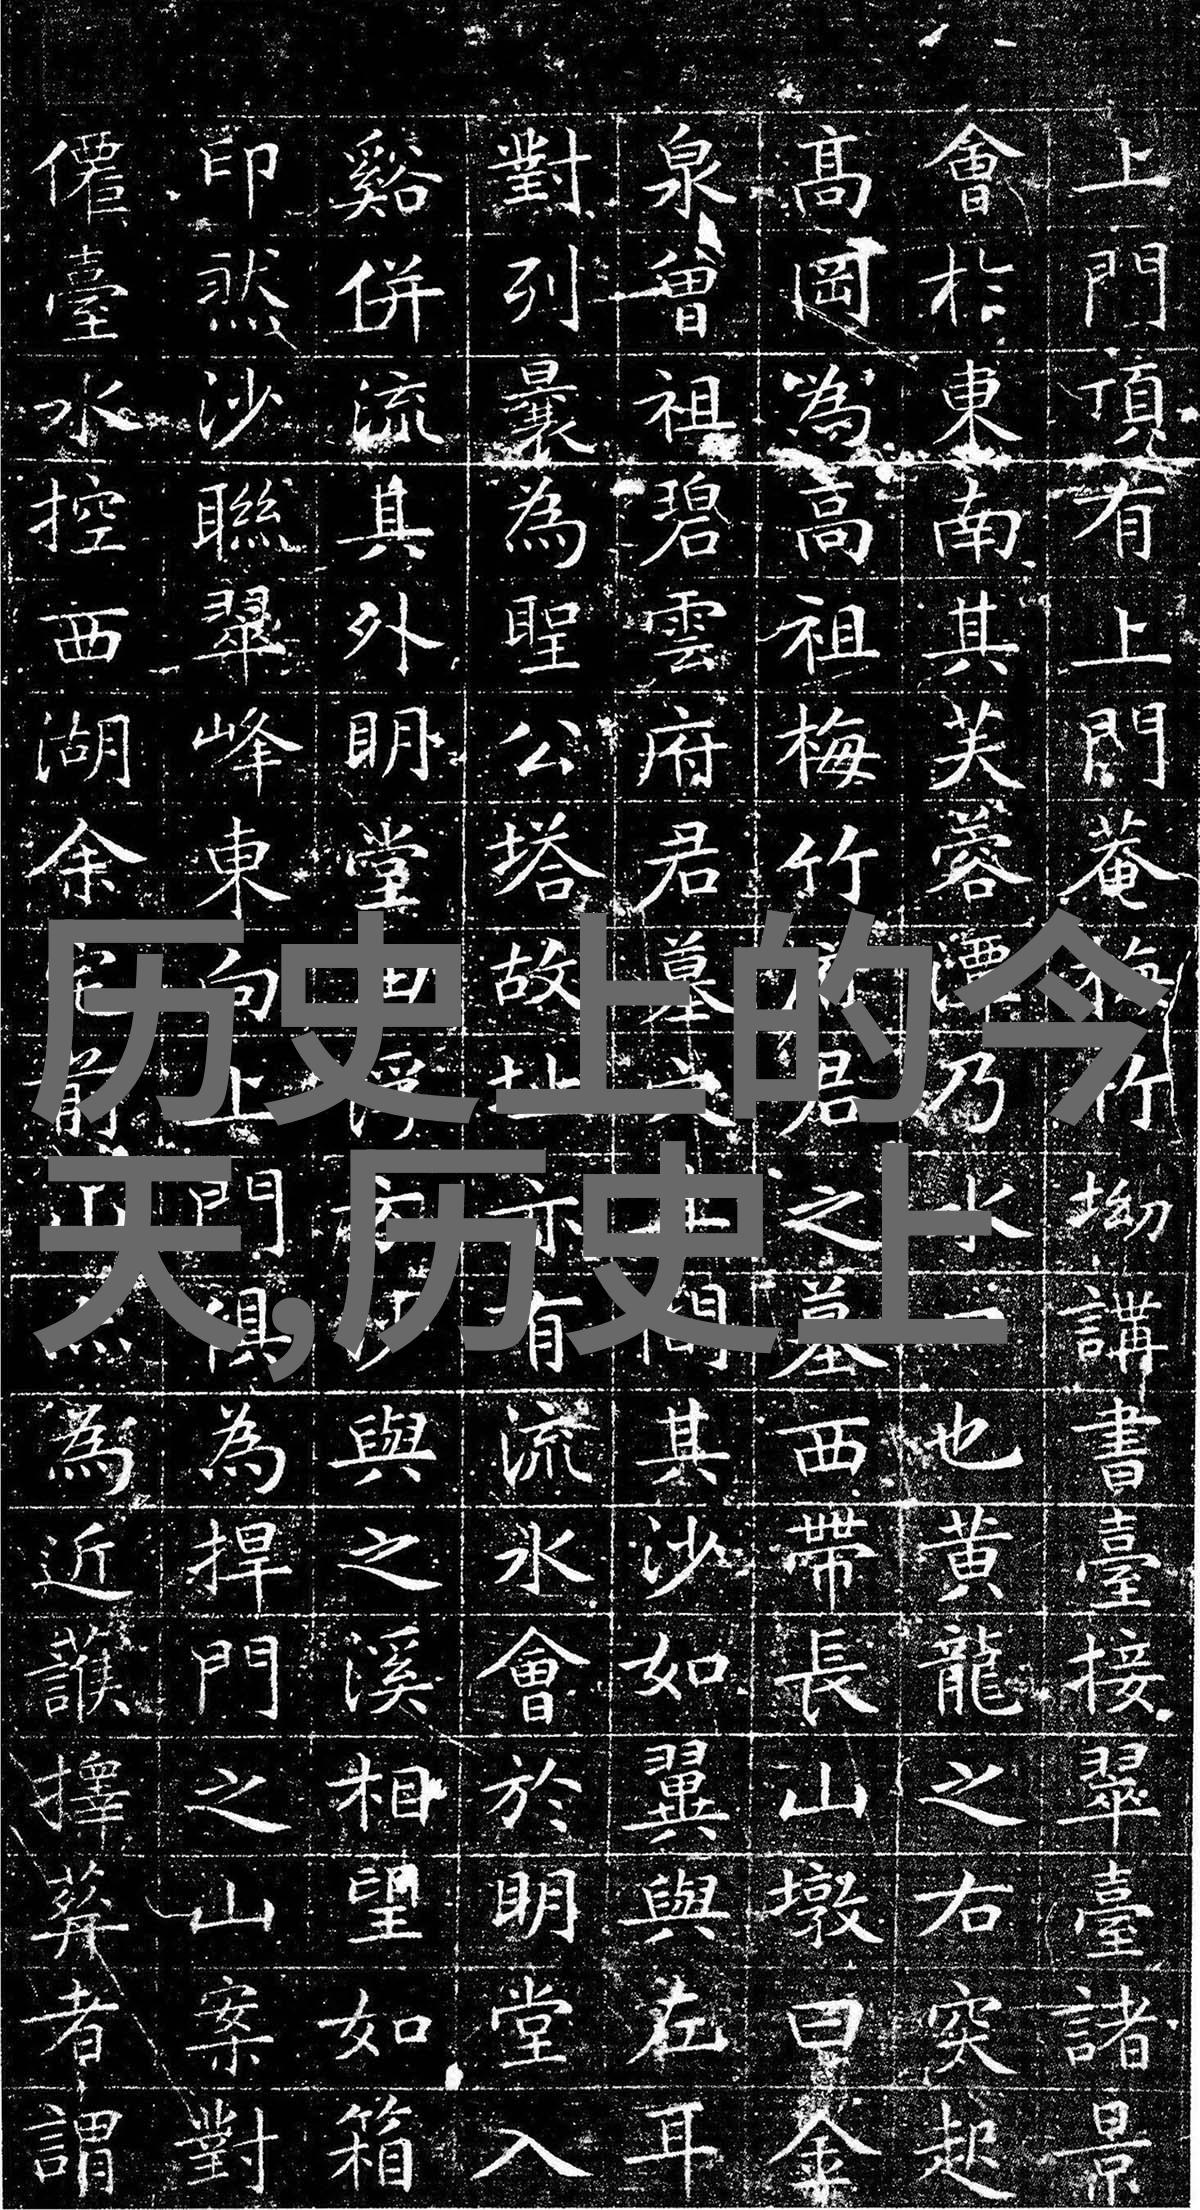 上門頂有上門菴梅竹坳講書臺接翠臺諸景
會於東南其芙蓉潭乃水一也黃龍之右突起
高岡為高祖梅竹府君之墓西帶長山墩曰金
泉曾祖碧雲府君墓之間其沙如翼與左耳
對列曩為聖公塔故址亦有流水會於明堂入
谿併流其外明堂田浮沙與之溪相望如箱
印然沙聯翠峰東向上門俱為捍門之山案對
僊臺水控西湖余宅前山為近護擇葬者謂
历史上的今
天,历史上